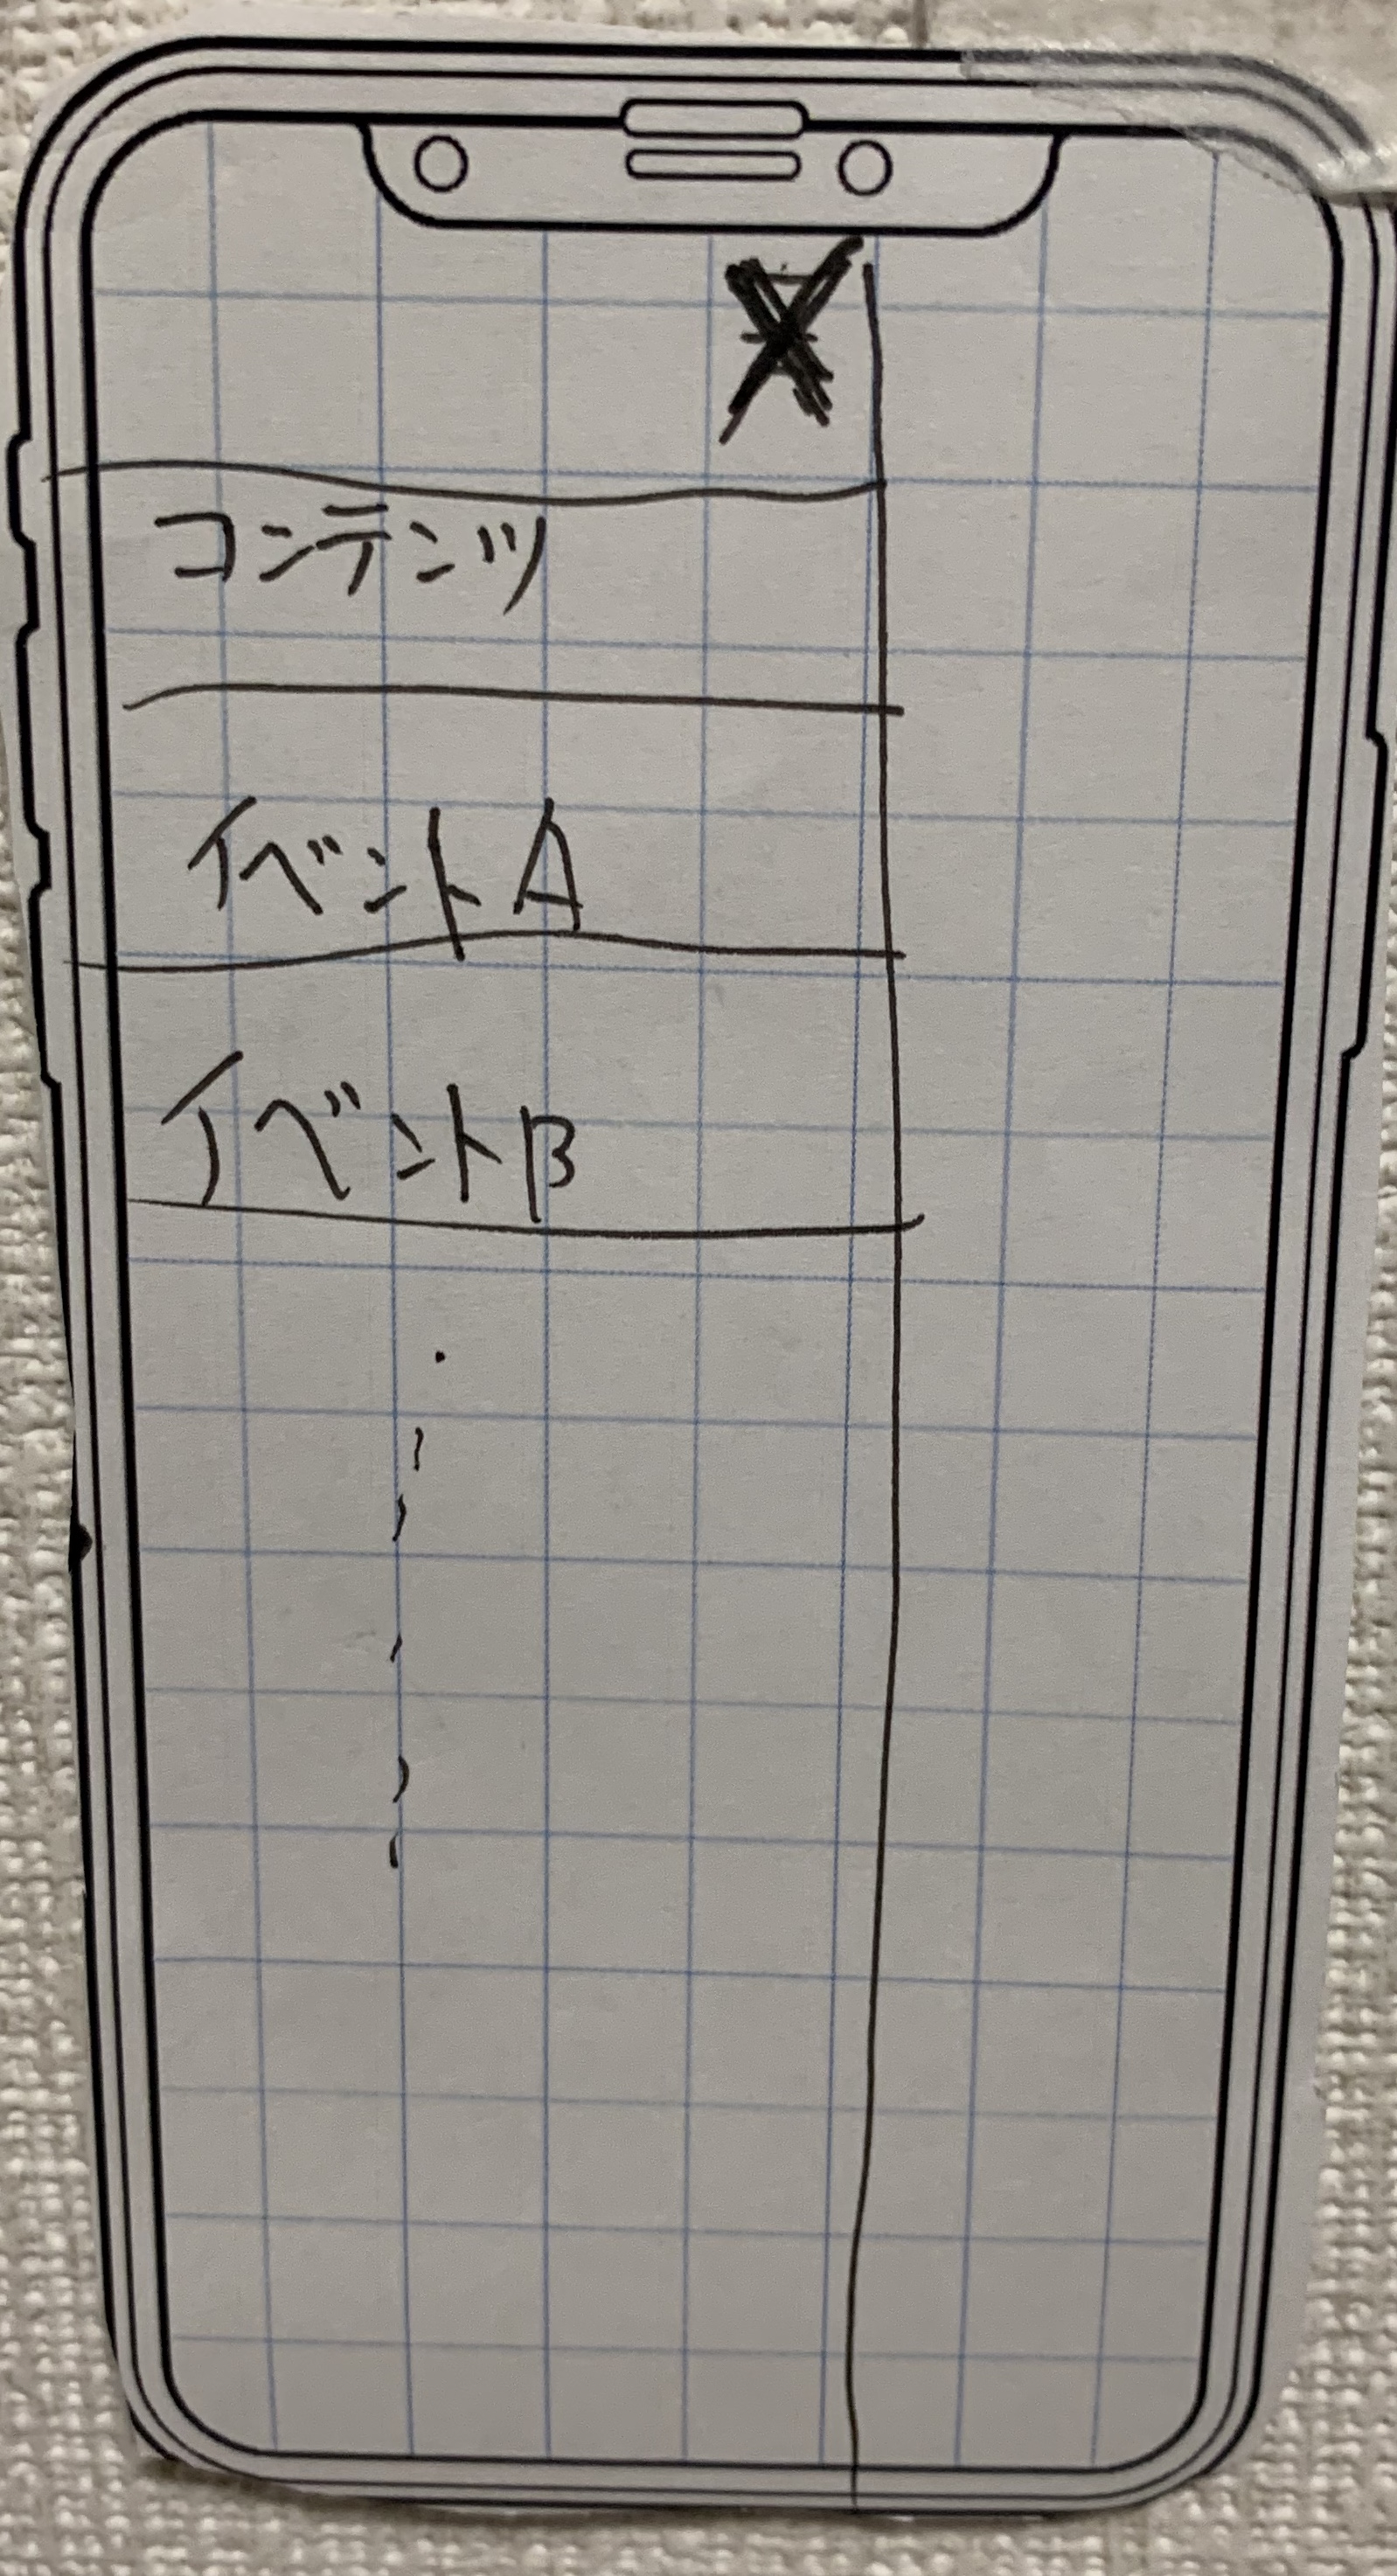 X
コンテンツ
イベントA
イベントB